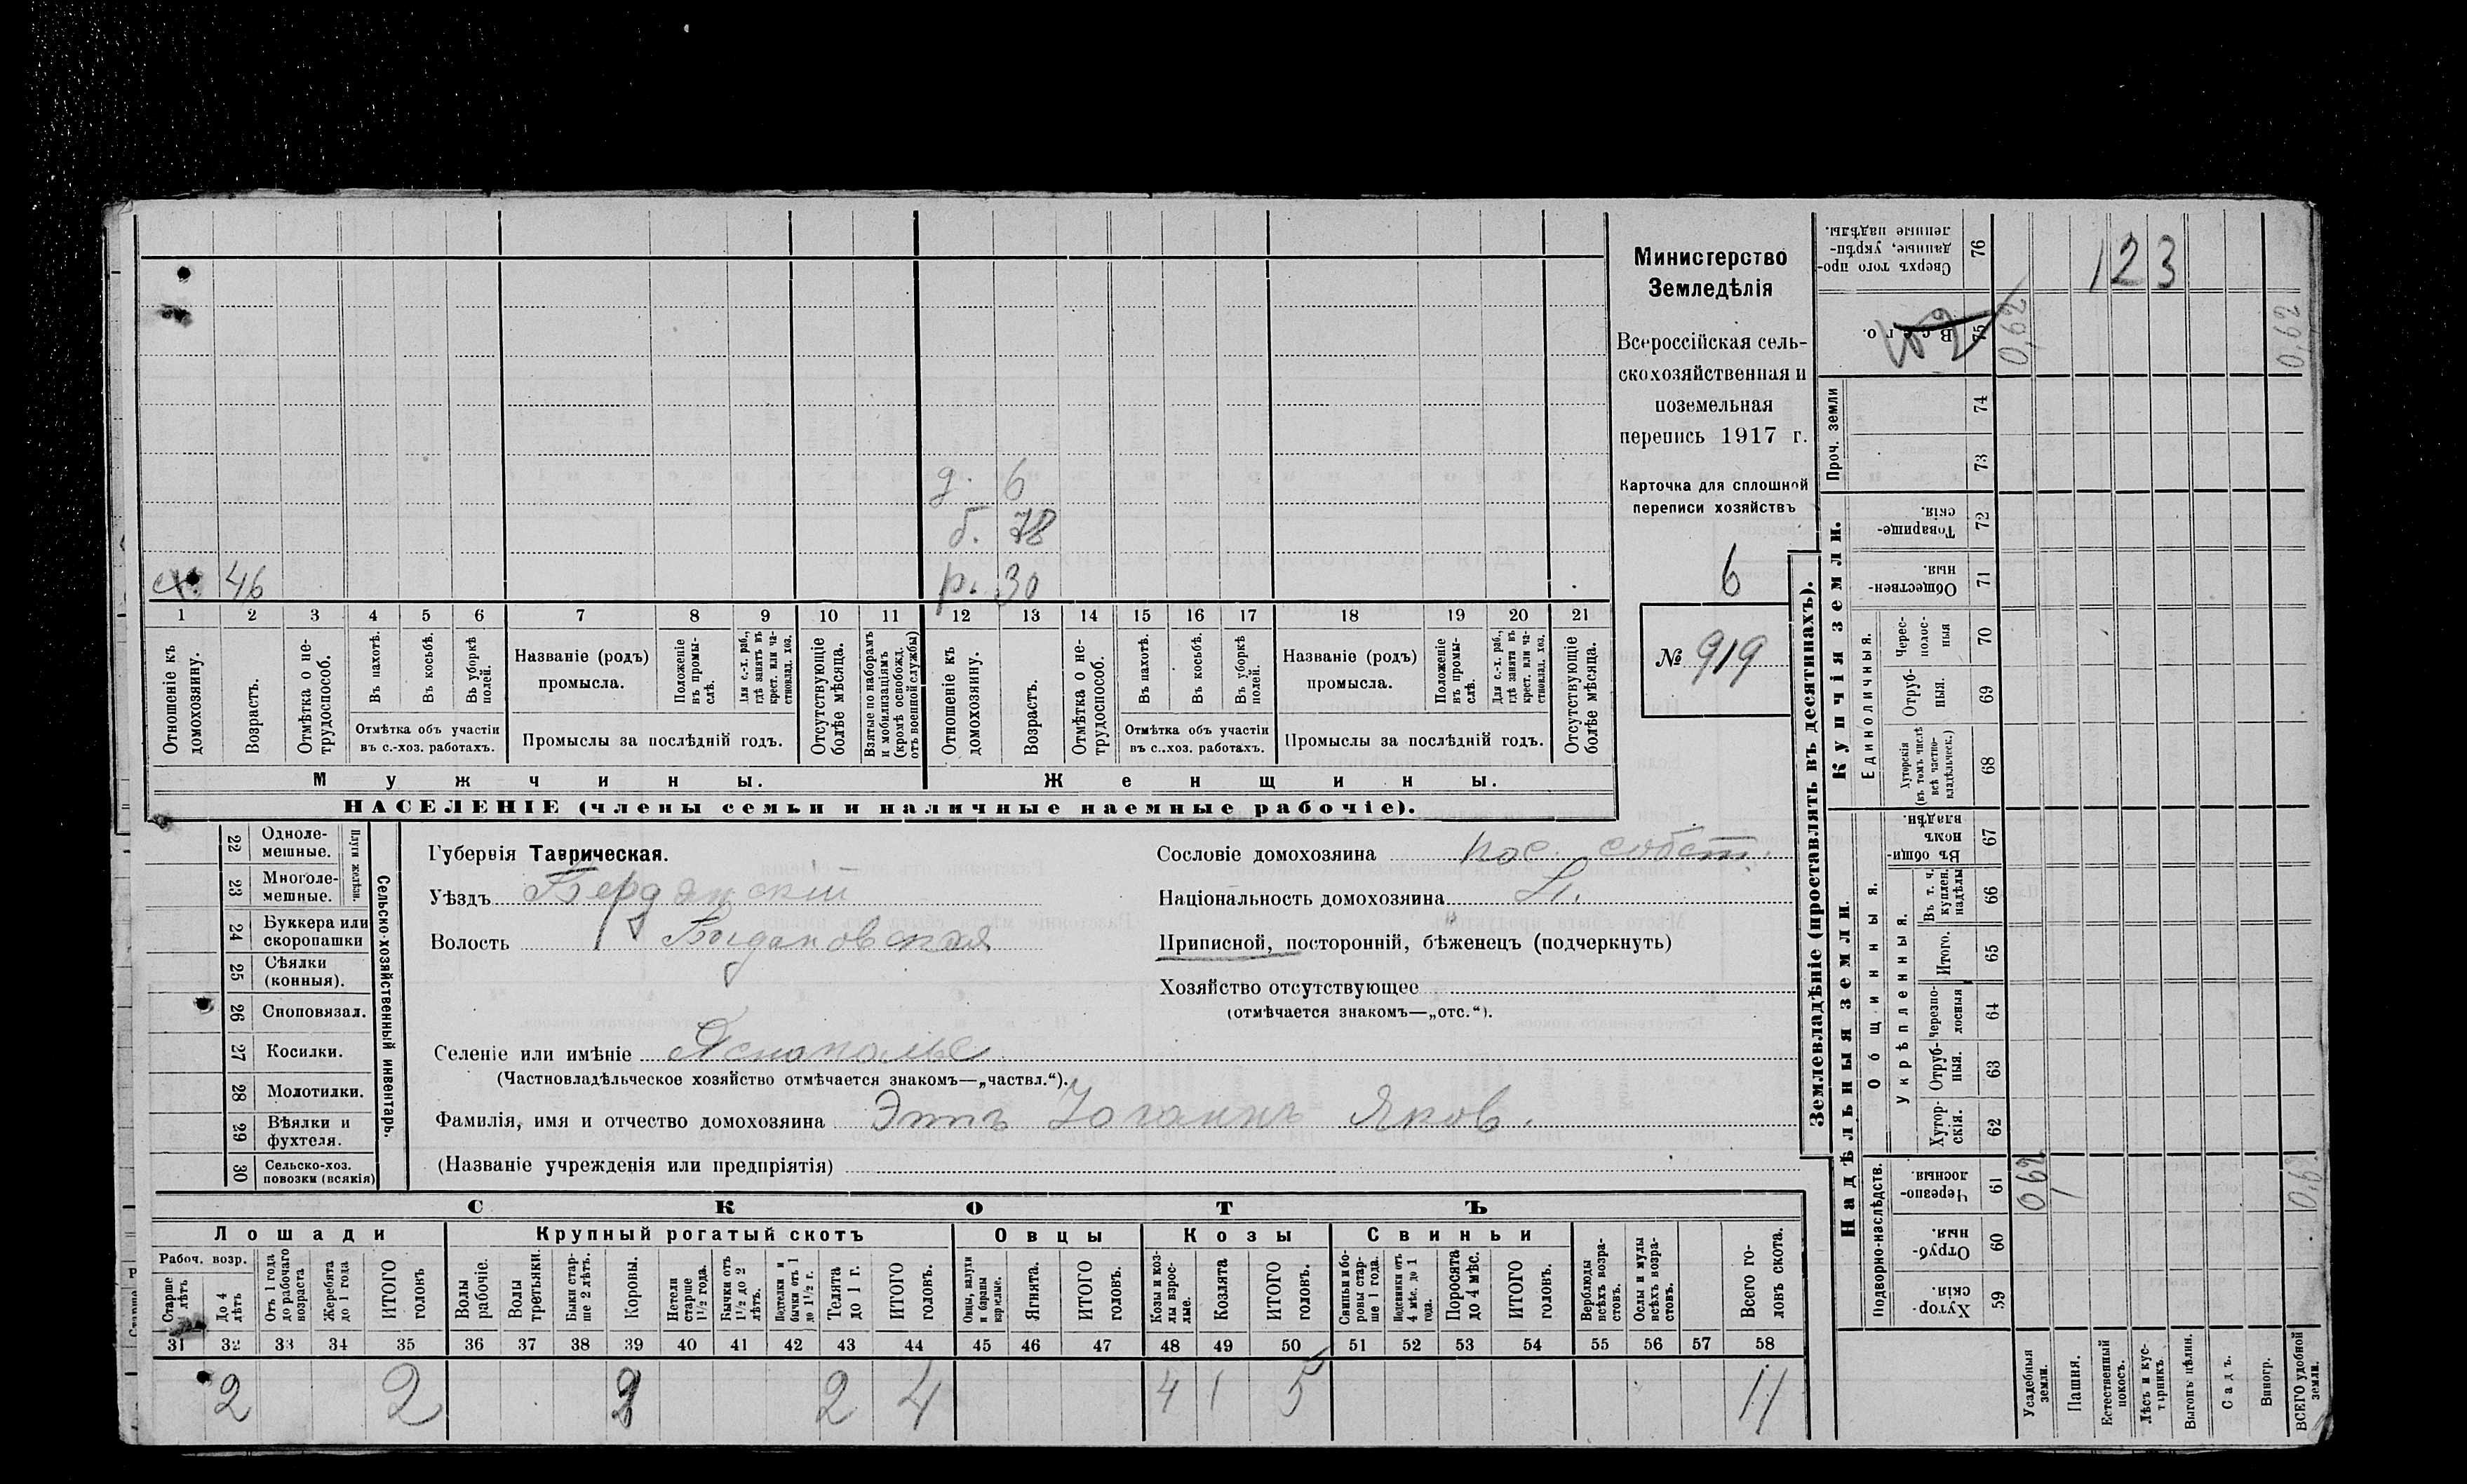 д. 6
б. 78
х. 46
р. 30
1 2 3 4 5 6 7 8 9 10 11 12 13 14 15 16 17 18 19 20 21
Отношеніе къ домохозяину.
Возрастъ.
Отмѣтка о нетрудоспособ.
Въ пахотѣ.
Въ косьбѣ.
Въ уборкѣ полей.
Отмѣтка объ участіи
въ с.-хоз. работахъ.
Названіе (родъ)
промысла.
Положеніе въ промыслѣ.
Для с.-х. раб., гдѣ занятъ въ крест. или частновлад. хоз.
Промыслы за послѣдній годъ.
Отсутствующіе болѣе мѣсяца.
Взятые по наборамъ и мобилизаціямъ (кромѣ освобожд. отъ военной службы)
Отношеніе къ домохозяину.
Возрастъ.
Отмѣтка о нетрудоспособ.
Въ пахотѣ.
Въ косьбѣ.
Въ уборкѣ полей.
Отмѣтка объ участіи
въ с.-хоз. работахъ.
Названіе (родъ)
промысла.
Положеніе въ промыслѣ.
Для с.-х. раб., гдѣ занята въ крест. или частновлад. хоз.
Промыслы за послѣдній годъ.
Отсутствующіе болѣе мѣсяца.
Мужчины.
Женщины.
НАСЕЛЕНІЕ (члены семьи и наличные наемные рабочіе).
Министерство
Земледѣлія
Всероссійская сель-
скохозяйственная и
поземельная
перепись 1917 г.
Карточка для сплошной
переписи хозяйствъ
6
№ 919
22 Одноле-
мешные.
23 Многоле-
мешные.
Плуги желѣзн.
24 Буккера или
скоропашки
25 Сѣялки
(конныя).
26 Сноповязал.
27 Косилки.
28 Молотилки.
29 Вѣялки и
фухтеля.
30 Сельско-хоз.
повозки (всякія)
Сельско-хозяйственный инвентарь.
Губернія Таврическая.
Уѣздъ Бердянскій
Волость Богдановская
Селеніе или имѣніе Яснополье
(Частновладѣльческое хозяйство отмѣчается знакомъ—„частвл.“).
Фамилія, имя и отчество домохозяина Эттъ Іоганнъ Яков.
(Названіе учрежденія или предпріятія)
Сословіе домохозяина пос. собст.
Національность домохозяина Н.
Приписной, посторонній, бѣженецъ (подчеркнуть)
Хозяйство отсутствующее
(отмѣчается знакомъ—„отс.“).
СКОТЪ
Лошади
Крупный рогатый скотъ
Овцы
Козы
Свиньи
Рабоч. возр.
Старше 4 лѣтъ
До 4 лѣтъ
Отъ 1 года до рабочаго возраста
Жеребята до 1 года
ИТОГО головъ
Волы рабочіе.
Волы третьяки.
Быки старше 2 лѣтъ.
Коровы.
Нетели старше 1½ года.
Бычки отъ 1½ до 2 лѣтъ.
Подтелки и бычки отъ 1 до 1½ г.
Телята до 1 г.
ИТОГО головъ.
Овцы, валухи и бараны взрослые.
Ягнята.
ИТОГО головъ.
Козы и козлы взрослые.
Козлята
ИТОГО головъ.
Свиньи и боровы старше 1 года.
Подсвинки отъ 4 мѣс. до 1 года.
Поросята до 4 мѣс.
ИТОГО головъ.
Верблюды всѣхъ возрастовъ.
Ослы и мулы всѣхъ возрастовъ.
Всего головъ скота.
31 32 33 34 35 36 37 38 39 40 41 42 43 44 45 46 47 48 49 50 51 52 53 54 55 56 57 58
2 2 2 2 4 4 1 5 11
Землевладѣніе (проставлять въ десятинахъ).
Надѣльныя земли.
Купчія земли.
Проч. земли
Подворно-наслѣдств.
Общинныя.
Укрѣпленныя.
Единоличныя.
Сверхъ того проданные, укрѣпленные надѣлы. 76
Всего. 75
74
73
Товарищескія. 72
Общественныя. 71
Чересполосныя 70
Отрубныя. 69
Хуторскія (въ томъ числѣ всѣ частновладѣльческ.) 68
Въ общинномъ владѣн. 67
Въ т. ч. куплен. надѣлы 66
Итого. 65
Черезполосныя 64
Отрубныя. 63
Хуторскія. 62
Черезполосныя. 61
Отрубныя. 60
Хуторскія. 59
123
0,62
0,62
0 62
1
0,62
Усадебныя земли.
Пашня.
Естественный покосъ.
Лѣсъ и кустарникъ.
Выгонъ цѣлин.
Садъ.
Виногр.
ВСЕГО удобной земли.